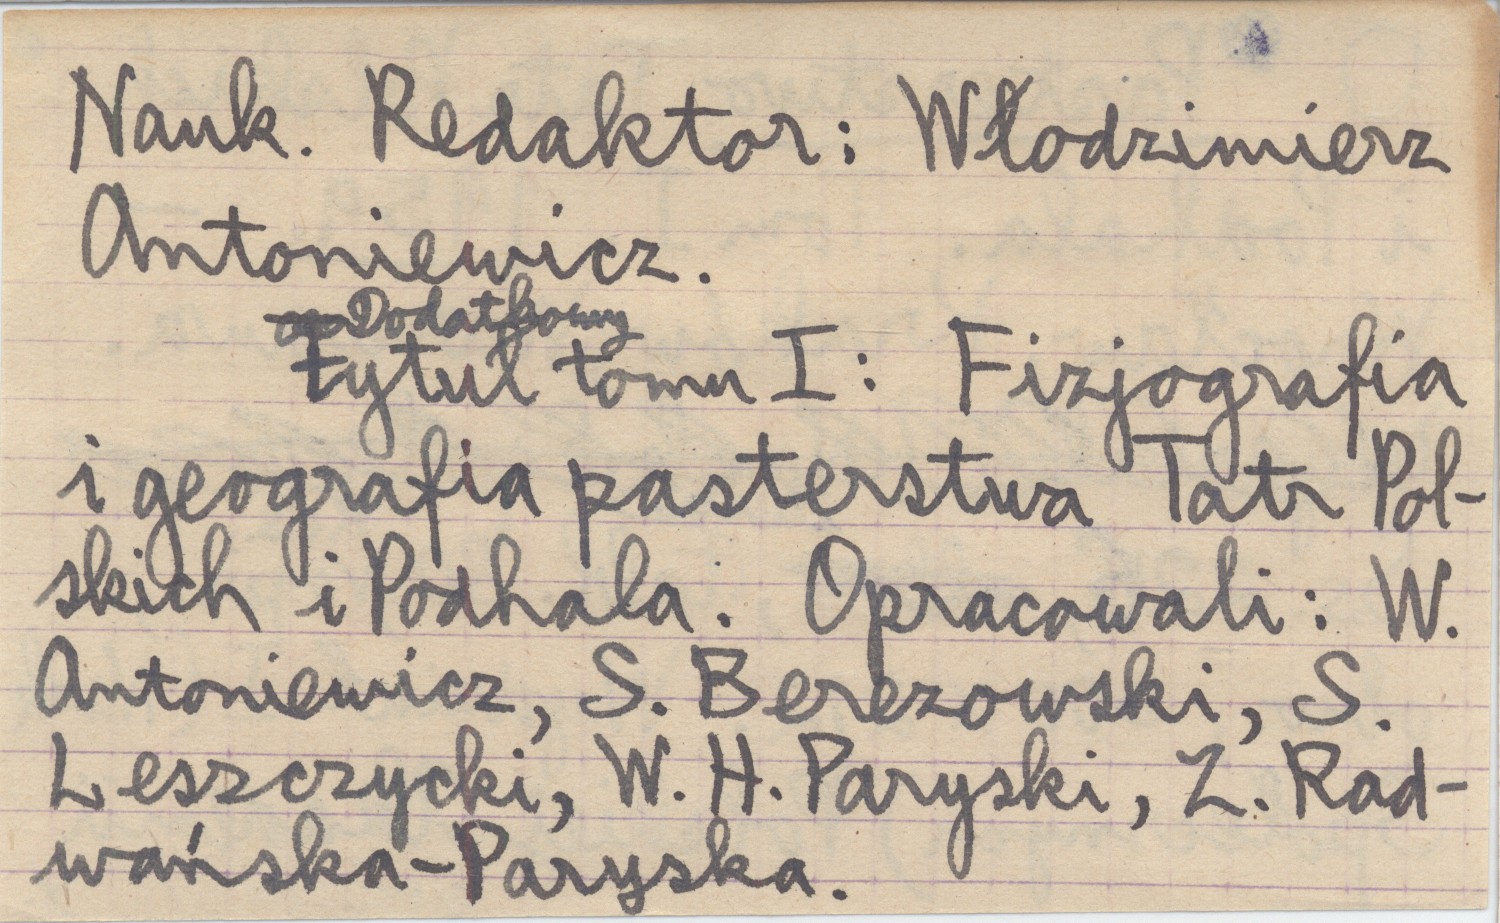 Nauk. Redaktor: Włodzimierz
Antoniewicz.
Dodatkowy
tytuł tomu I: Fizjografia
i geografia pasterstwa Tatr Pol-
skich i Podhala. Opracowali: W.
Antoniewicz, S. Berezowski, S.
Leszczycki, W. H. Paryski, Z. Rad-
wańska-Paryska.